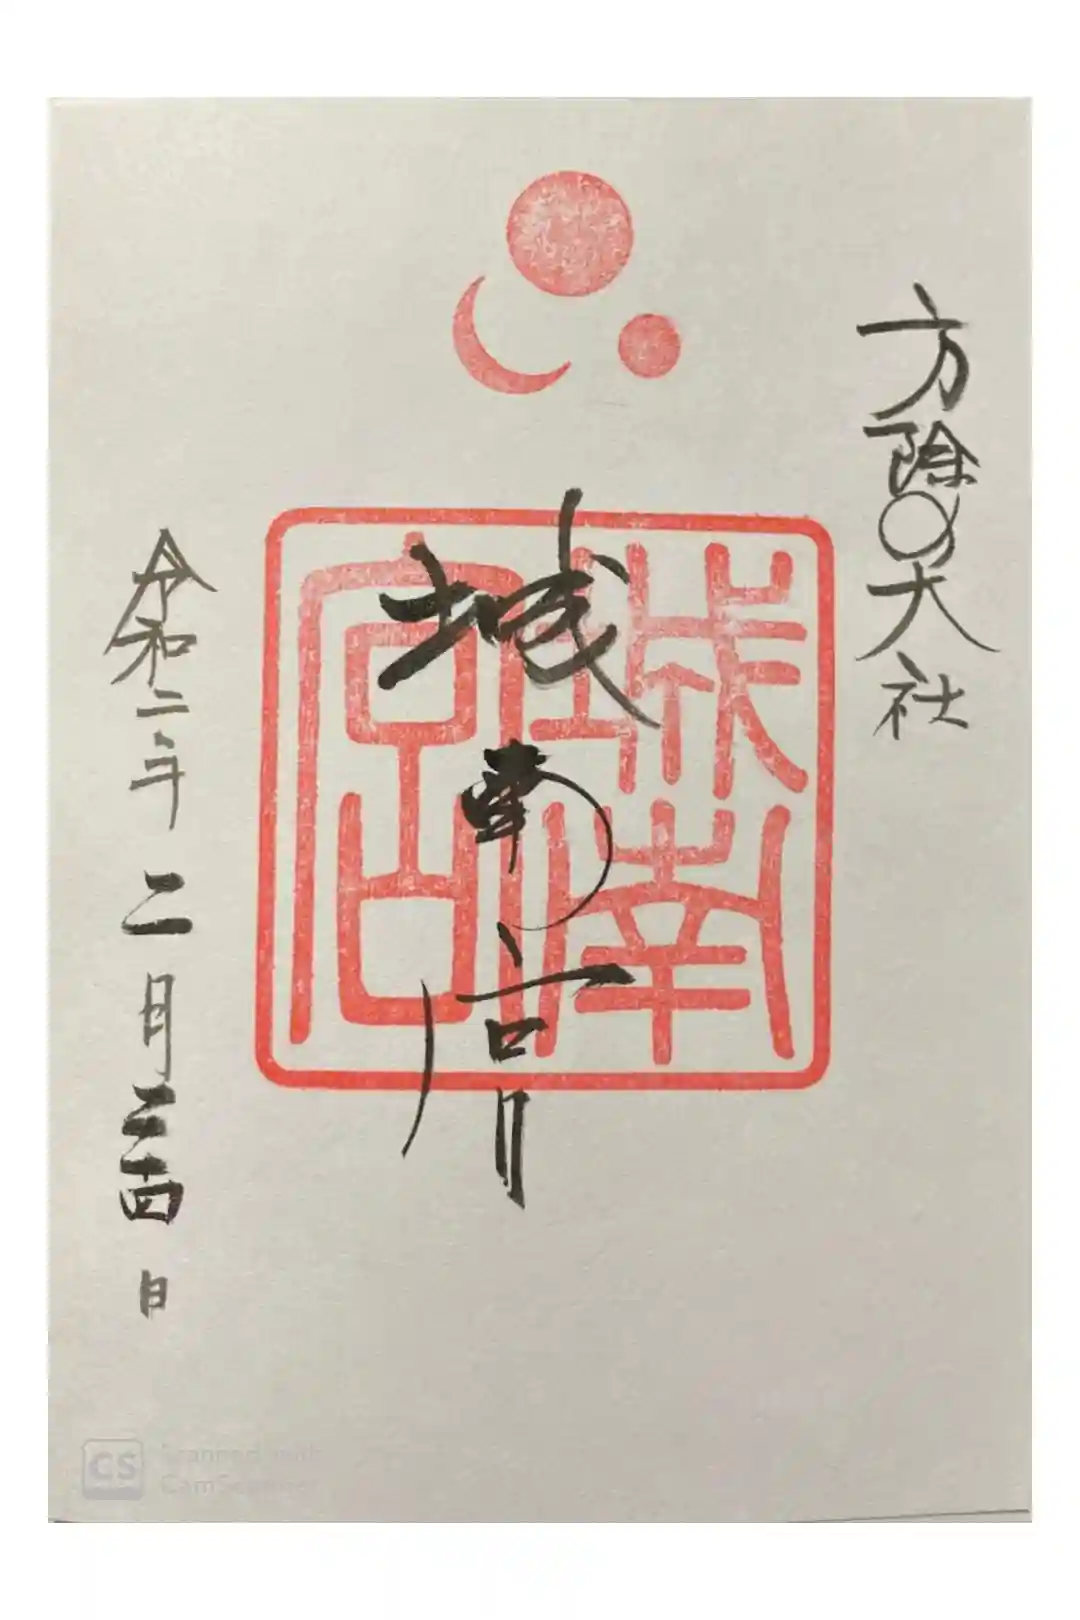 方除の大社
城南宮
城南宮
令和二年二月二十四日
CS Scanned with
CamScanner